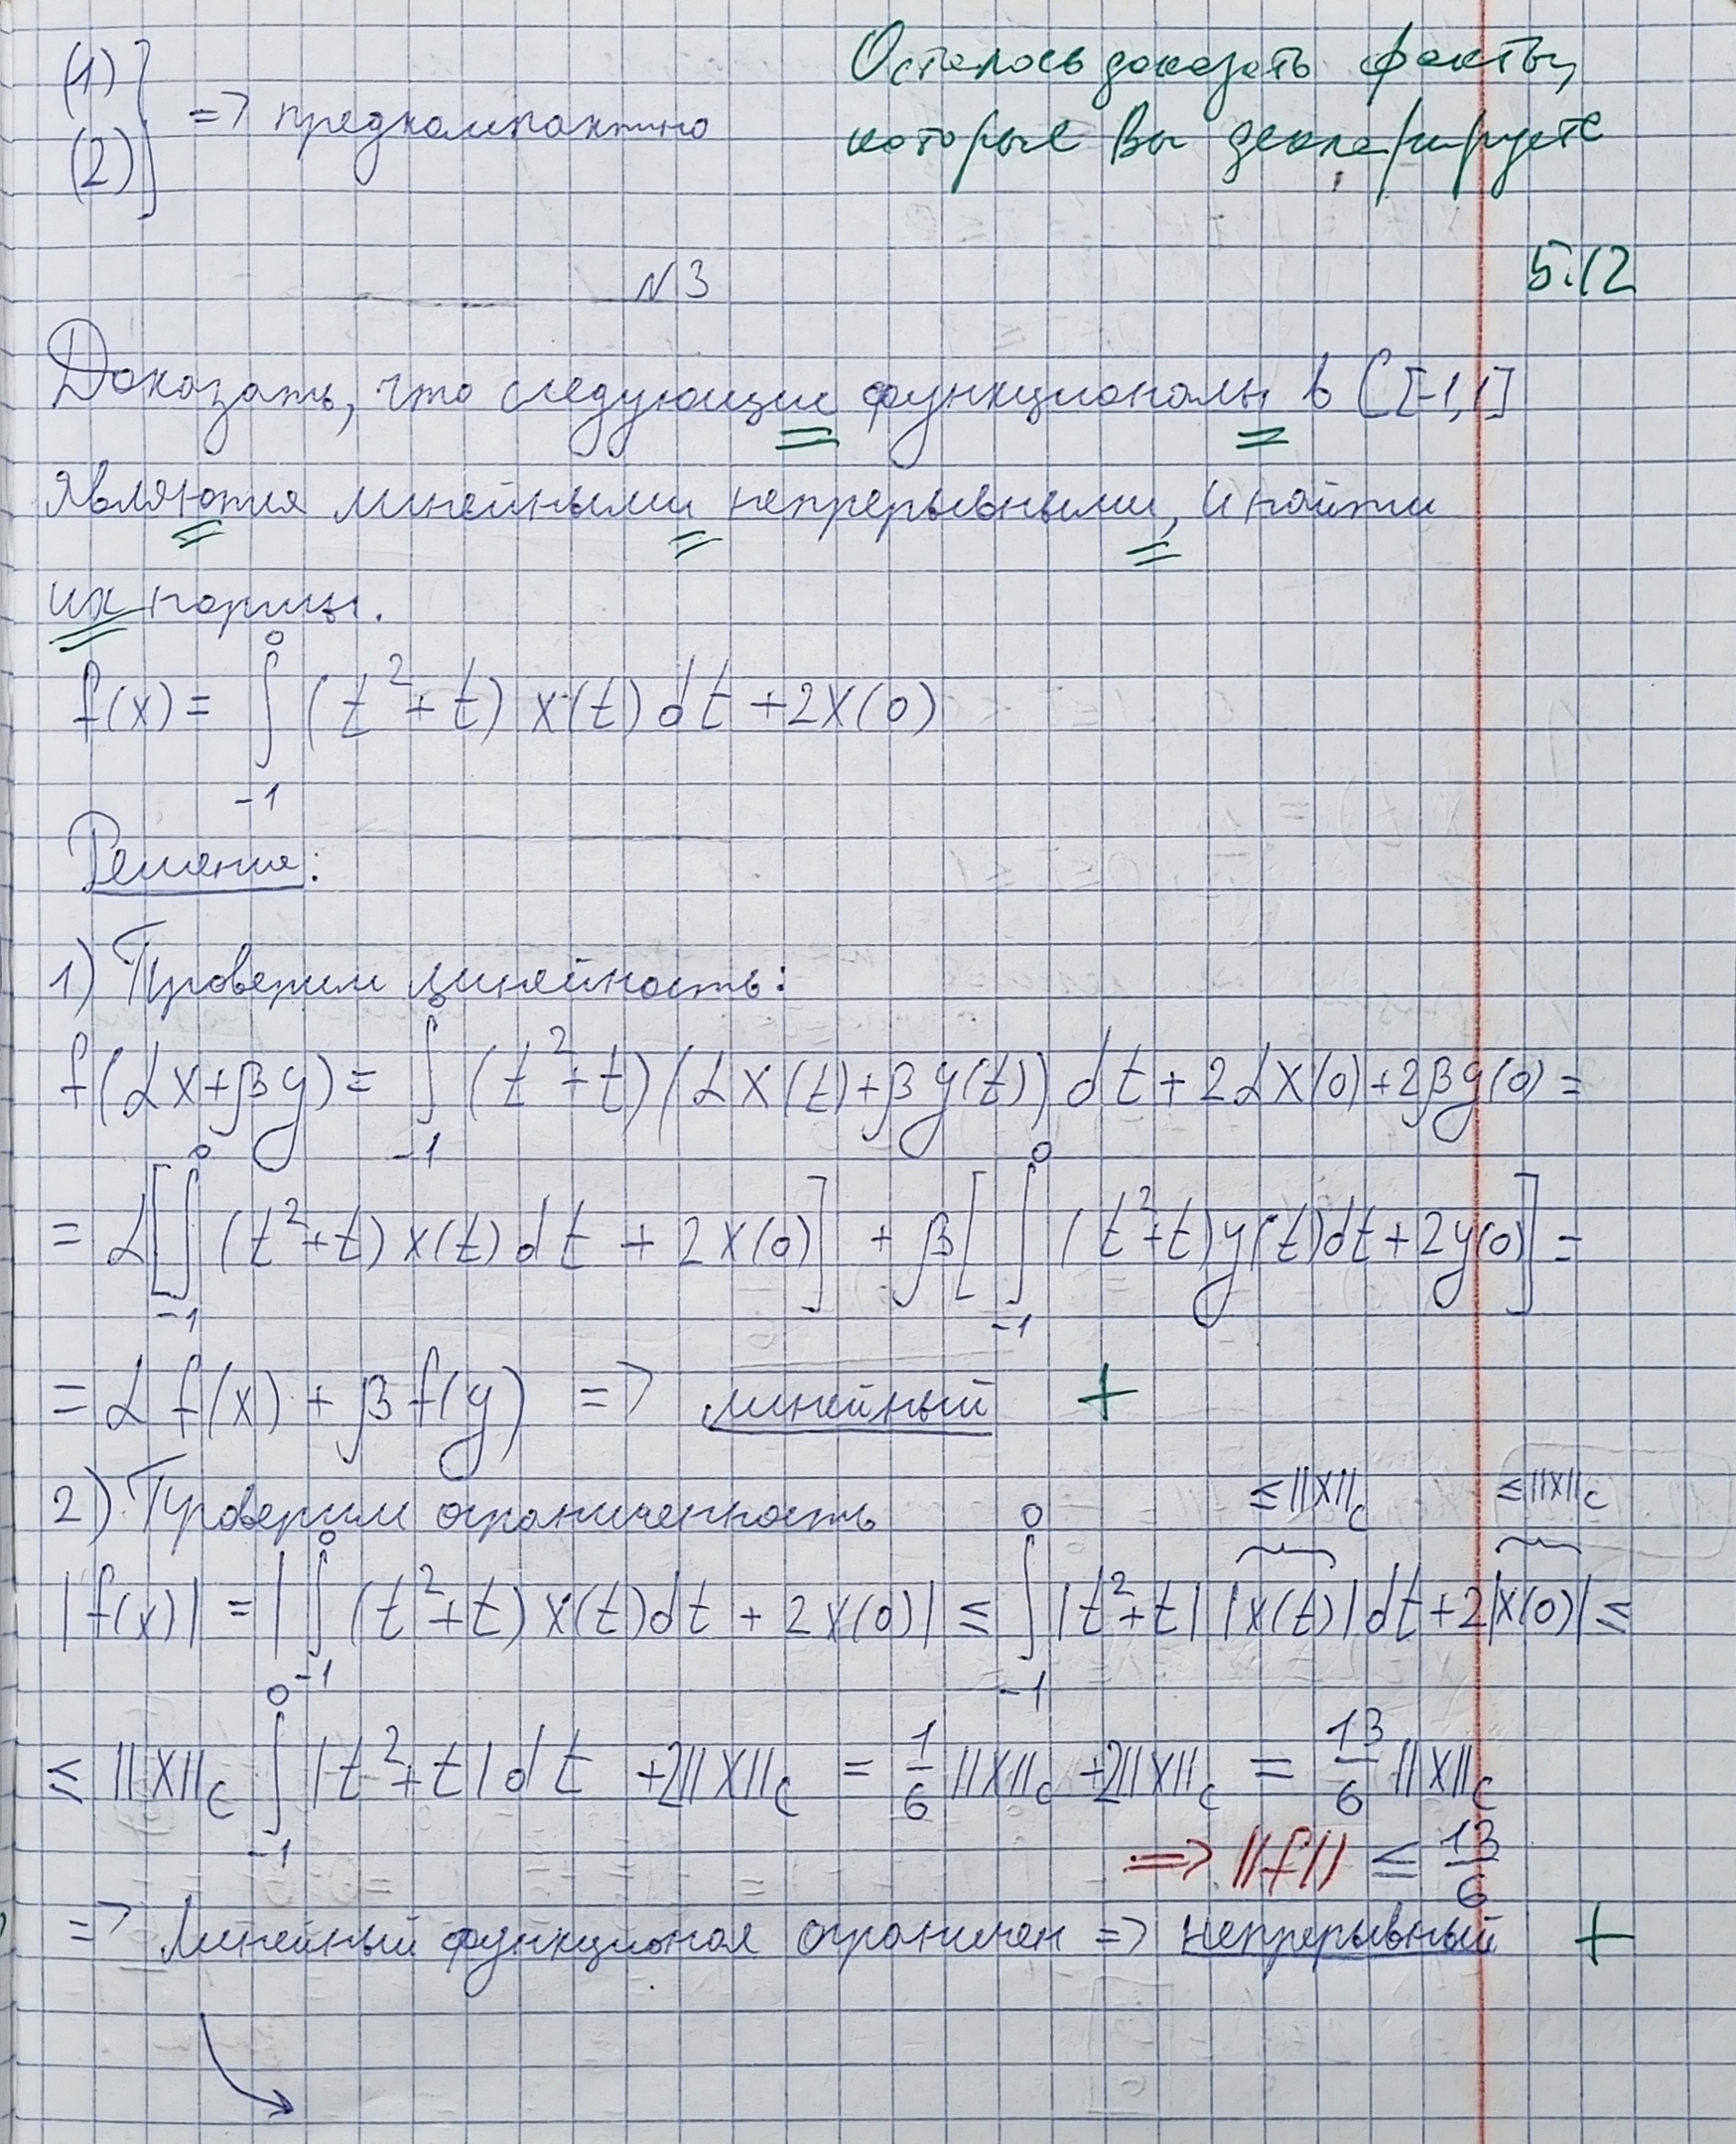 (1)
(2) => предкомпактно
Осталось доказать факты,
которые Вы декларируете
N3
5.12
Доказать, что следующие функционалы в C[-1,1]
являются линейными непрерывными, и найти
их нормы.
f(x) = ∫_{-1}^{0} (t²+t) x(t) dt + 2x(0)
Решение:
1) Проверим линейность:
f(αx+βy) = ∫_{-1}^{0} (t²+t)(αx(t)+βy(t)) dt + 2αx(0)+2βy(0) =
= α[∫_{-1}^{0} (t²+t) x(t) dt + 2x(0)] + β[∫_{-1}^{0} (t²+t)y(t)dt+2y(0)] =
= αf(x) + βf(y) => линейный +
2) Проверим ограниченность
≤||x||_C ≤||x||_C
|f(x)| = |∫_{-1}^{0} (t²+t) x(t)dt + 2x(0)| ≤ ∫_{-1}^{0} |t²+t| |x(t)| dt+2|x(0)| ≤
≤ ||x||_C ∫_{-1}^{0} |t²+t| dt +2||x||_C = 1/6 ||x||_C +2||x||_C = 13/6 ||x||_C
=> ||f|| ≤ 13/6
=> линейный функционал ограничен => непрерывный +